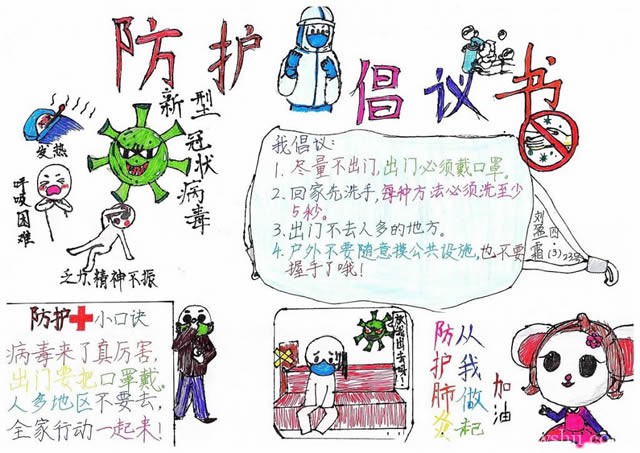 防护倡议书
新型冠状病毒
发热
呼吸困难
乏力精神不振
我倡议:
1. 尽量不出门,出门必须戴口罩。
2. 回家先洗手,每种方法必须洗至少
5秒。
3. 出门不去人多的地方。
4. 户外不要随意摸公共设施,也不要
握手了哦!
四(3)23号
防护小口诀
病毒来了真厉害,
出门要把口罩戴,
人多地区不要去,
全家行动一起来!
放我出去呀!
防护肺炎
从我做起
加油